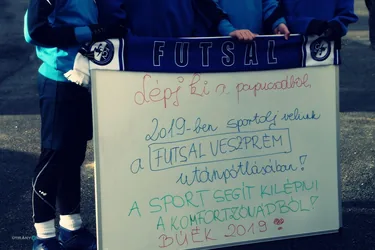 FUTSAL
Lépj ki a papucsodból,
2019-ben sportolj velünk
a FUTSAL VESZPRÉM
utánpótlásában!
A SPORT SEGÍT KILÉPNI
A KOMFORTZÓNÁDBÓL!
BÚÉK 2019